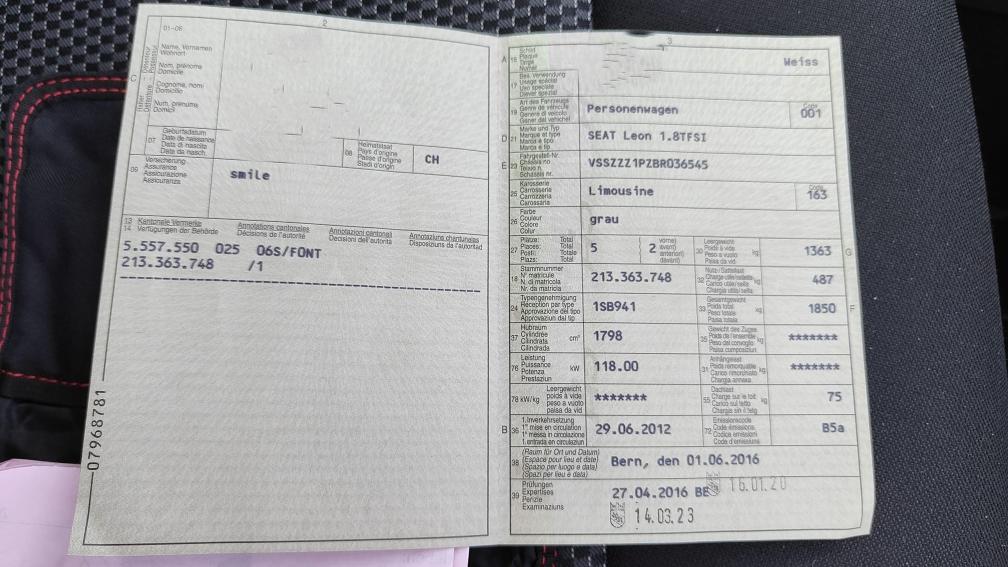 2
01-06
Name, Vornamen
Wohnort
Nom, prénoms
Domicile
Cognome, nomi
Domicilio
Num, prenums
Domicil
C
07
Geburtsdatum
Date de naissance
Data di nascita
Data da nasch.
08
Heimatstaat
Pays d'origine
Paese d'origine
Stadi d'origin
CH
09
Versicherung
Assurance
Assicurazione
Assicuranza
smile
13 Kantonale Vermerke Annotations cantonales Annotazioni cantonali Annotaziuns chantunalas
14 Verfügungen der Behörde Décisions de l'autorité Decisioni dell'autorità Disposiziuns da l'autoritad
5.557.550 025 06S/FONT
213.363.748 /1
07968781
3
A
Schild
Plaque
Targa
Numer
Weiss
17
Bes. Verwendung
Usage spécial
Uso speciale
Diever spezial
19
Art des Fahrzeugs
Genre de véhicule
Genere di veicolo
Gener dal vehichel
Personenwagen
Code
001
D 21
Marke und Typ
Marque et type
Marca e tipo
Marca e tip
SEAT Leon 1.8TFSI
E 23
Fahrgestell-Nr.
Châssis no
Telaio n.
Schassis nr.
VSSZZZ1PZBR036545
25
Karosserie
Carrosserie
Carrozzeria
Carossaria
Limousine
Code
163
26
Farbe
Couleur
Colore
Colur
grau
27
Plätze: Total
Places: Total
Posti: Totale
Plazs: Total
5
2
vorne)
avant)
anteriori)
davant)
30
Leergewicht
Poids à vide
Peso a vuoto
Paisa da vid
kg
1363
G
18
Stammnummer
N° matricule
N. di matricola
Nr. da matricla
213.363.748
32
Nutz-/Sattellast
Charge utile/sellette
Carico utile/sella
Chargia utila/sella
kg
487
24
Typengenehmigung
Réception par type
Approvazione del tipo
Approvaziun dal tip
1SB941
33
Gesamtgewicht
Poids total
Peso totale
Paisa totala
kg
1850
F
37
Hubraum
Cylindrée
Cilindrata
Cilindrada
cm³
1798
35
Gewicht des Zuges
Poids de l'ensemble
Peso del convoglio
Paisa cumposiziun
kg
*******
76
Leistung
Puissance
Potenza
Prestaziun
kW
118.00
31
Anhängelast
Poids remorquable
Carico rimorchiato
Chargia annexa
kg
*******
78 kW/kg
Leergewicht
poids à vide
peso a vuoto
paisa da vid
*******
55
Dachlast
Charge sur le toit
Carico sul tetto
Chargia sin il tetg
kg
75
B 36
1. Inverkehrsetzung
1re mise en circulation
1a messa in circolazione
1. entrada en circulaziun
29.06.2012
72
Emissionscode
Code émissions
Codice emissioni
Code d'emissiuns
B5a
38
(Raum für Ort und Datum)
(Espace pour lieu et date)
(Spazio per luogo e data)
(Spazi per lieu e data)
Bern, den 01.06.2016
39
Prüfungen
Expertises
Perizie
Examinaziuns
27.04.2016 BE 16.01.20
14.03.23